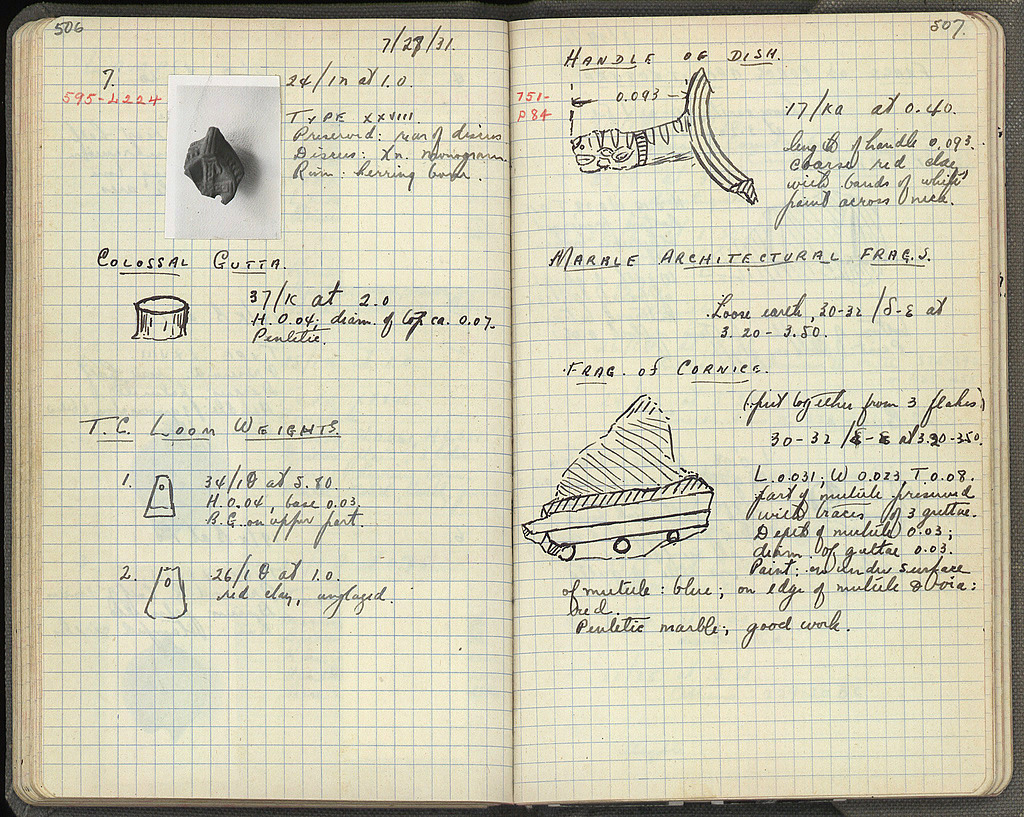 506
7/27/31.
7.
595-L224
24/ΙΠ at 1.0.
TYPE XXVIII.
Preserved: rear of discus
Discus: Xn. monogram.
Rim: herring bone.
COLOSSAL GUTTA.
37/Κ at 2.0
H. 0.04; diam. of top ca. 0.07.
Pentelic.
T.C. LOOM WEIGHTS.
1.
34/ΙΘ at 5.80.
H. 0.04, base 0.03.
B.G. on upper part.
2.
26/ΙΘ at 1.0.
red clay, unglazed.
507.
HANDLE OF DISH.
751-
P84
0.093
17/ΚΑ at 0.40.
length of handle 0.093.
coarse red clay
with bands of white
paint across neck.
MARBLE ARCHITECTURAL FRAGS.
Loose earth, 30-32/δ-ε at
3.20-3.50.
FRAG. of CORNICE.
(put together from 3 flakes)
30-32/δ-ε at 3.20-3.50.
L. 0.031; W 0.023, T 0.08.
part of mutule preserved
with traces of 3 guttae.
Depth of mutule 0.03;
diam. of guttae 0.03.
Paint: on under surface
of mutule: blue; on edge of mutule & via:
red.
Pentelic marble; good work.